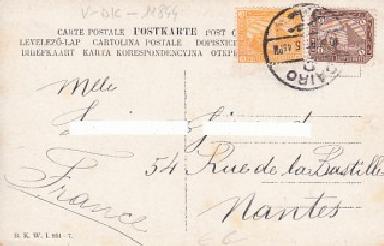 V-DIC-11844
CARTE POSTALE POSTKARTE POST
LEVELEZŐ-LAP CARTOLINA POSTALE DOPISNI
BRIEFKAART KARTA KORESPONDENCYJNA ОТКР
CAIRO
Melle
54 Rue de la Bastille
Nantes
France
B. K. W. I.